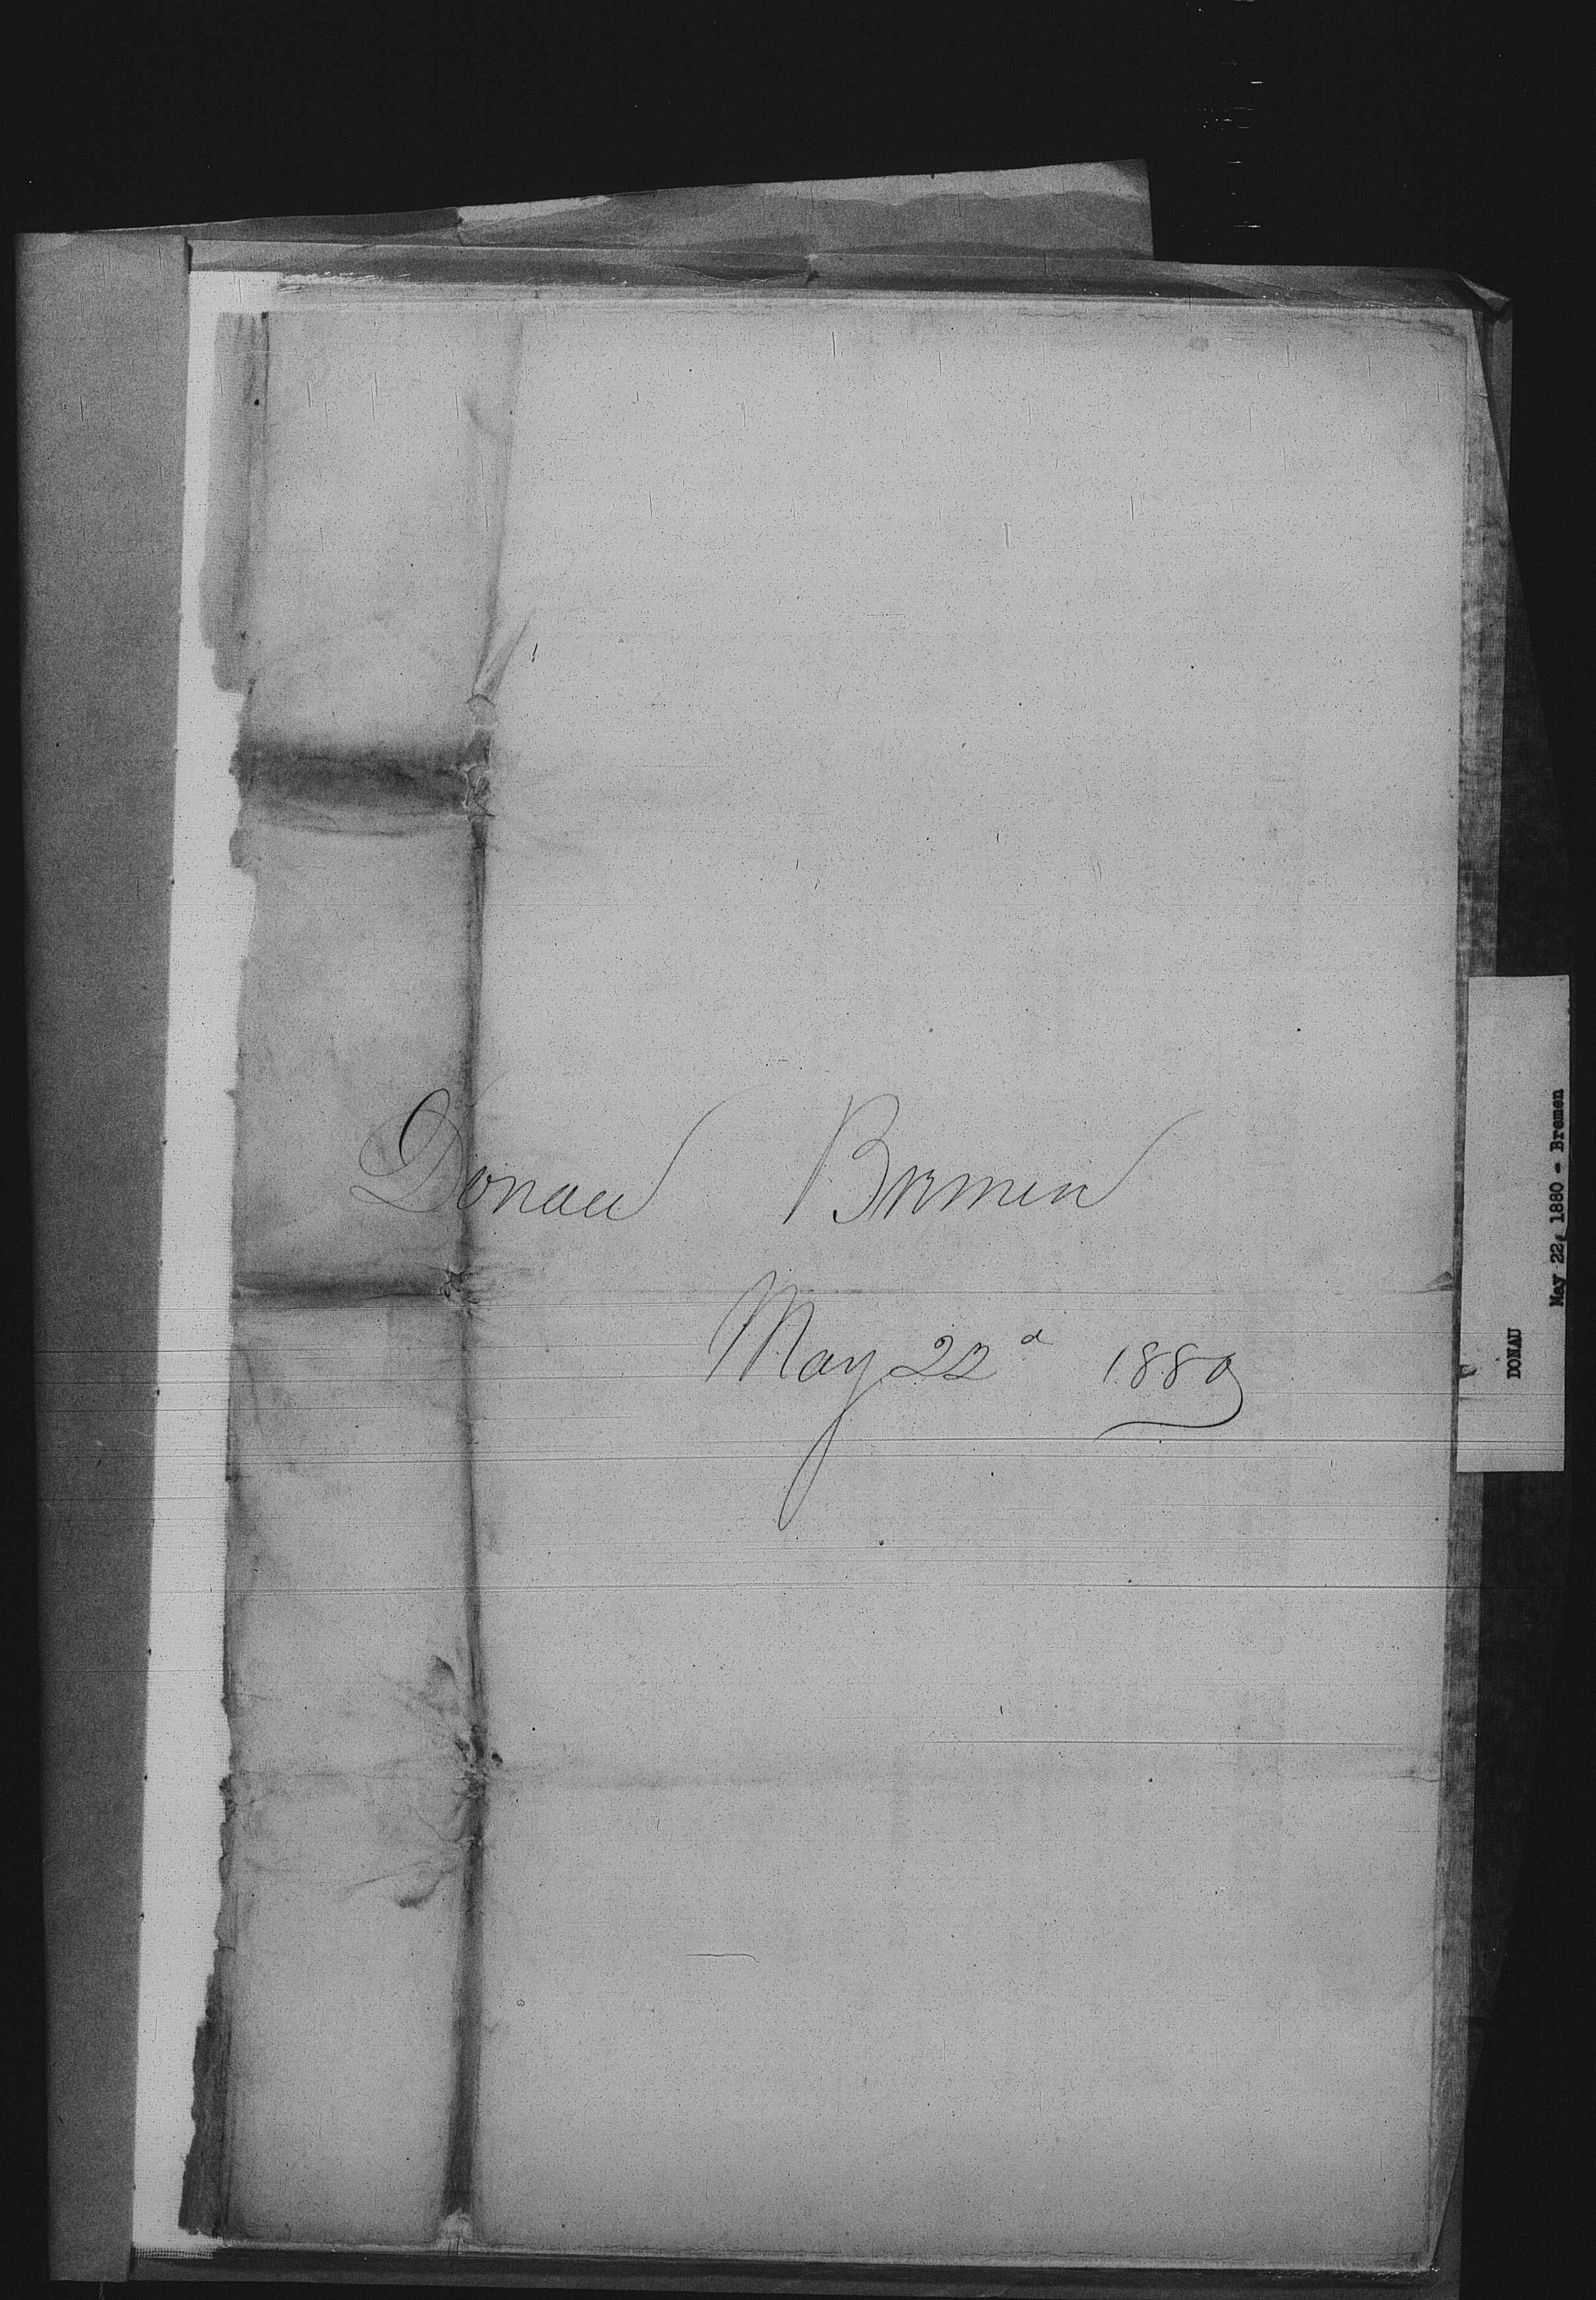 Donau Bremen
May 22d 1880
DONAU
May 22, 1880 - Bremen